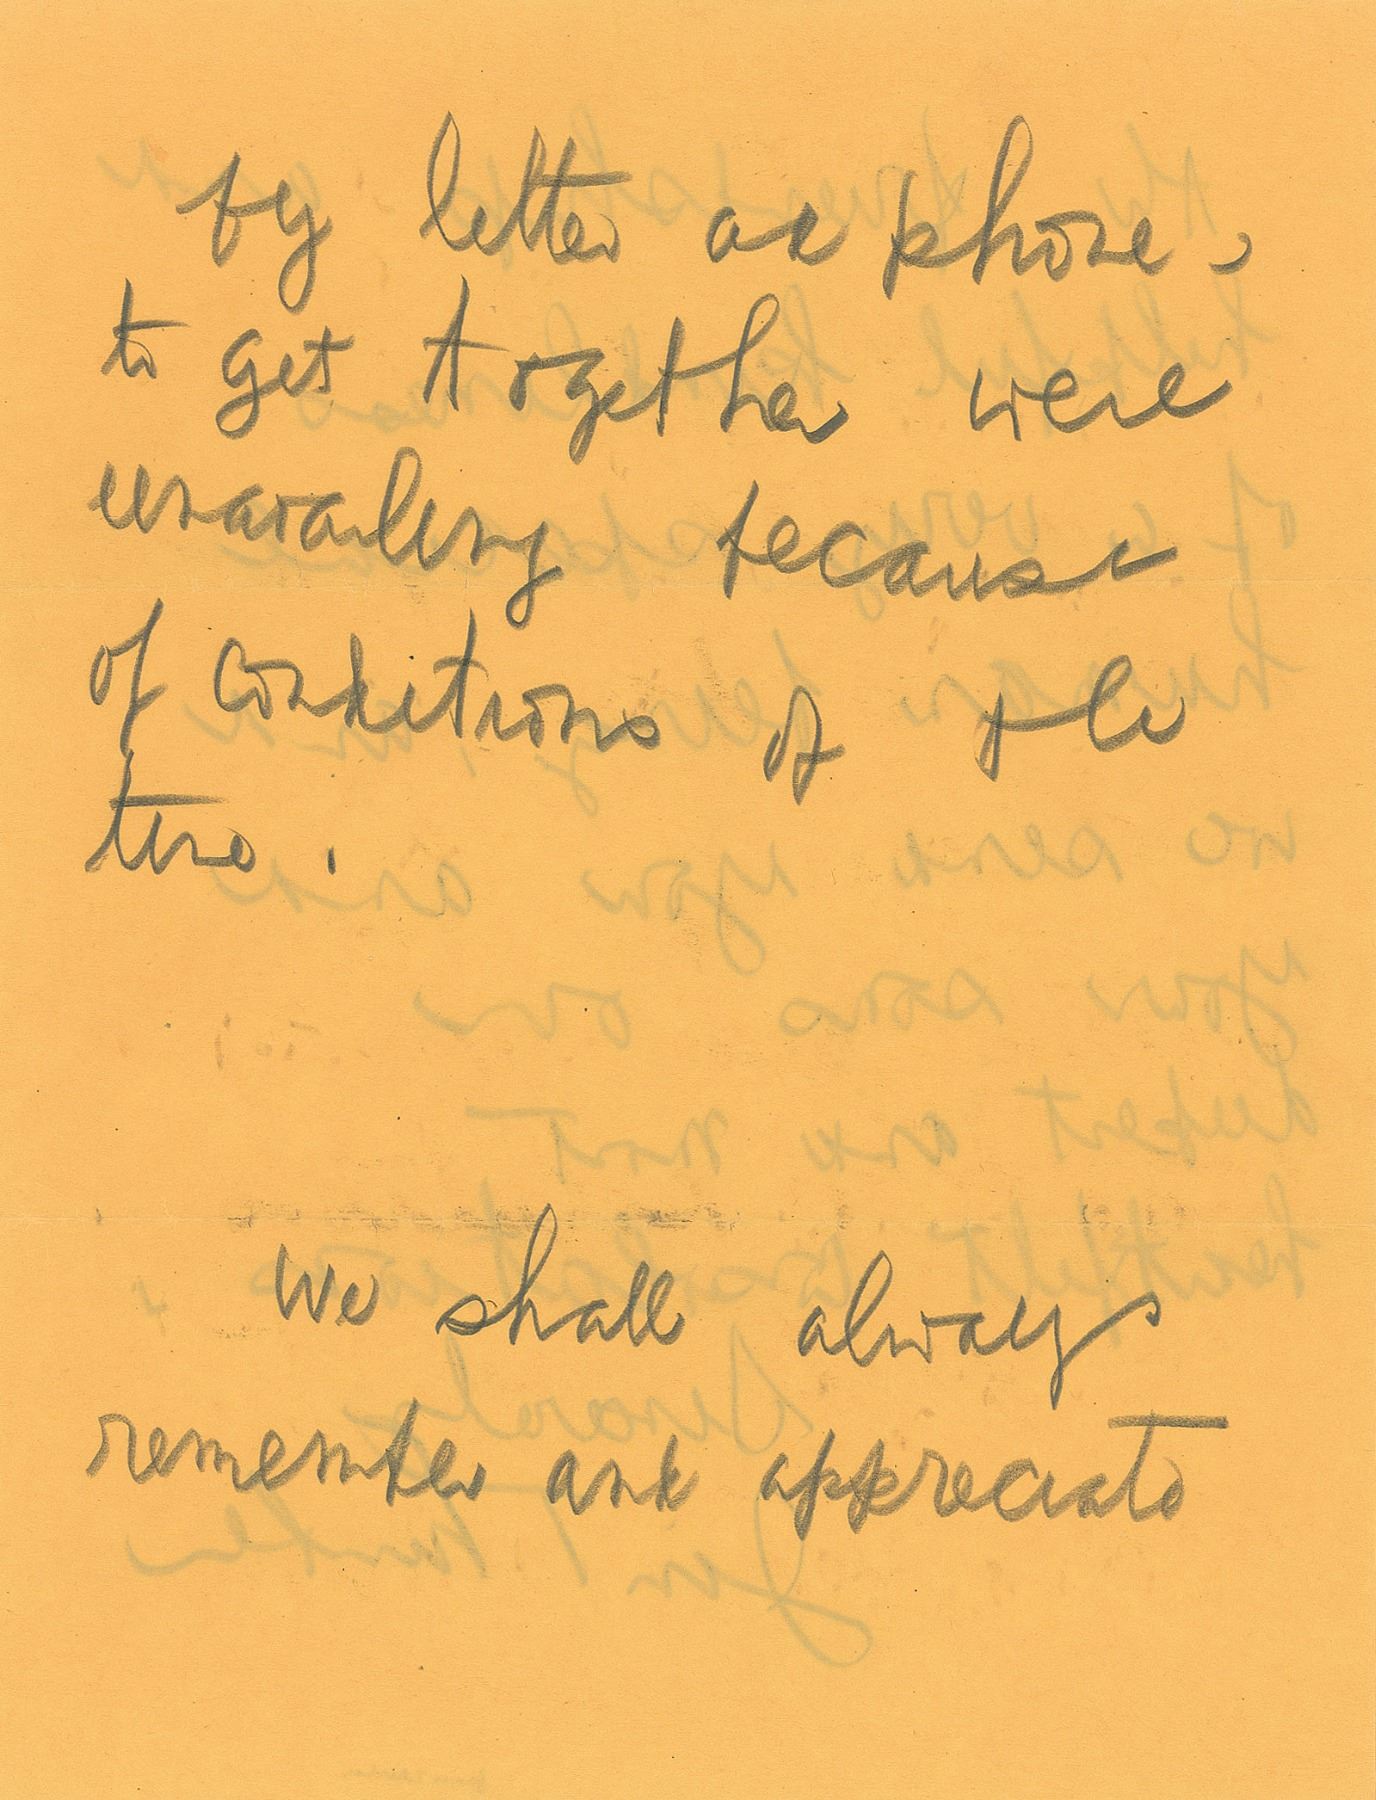 by letter or phone,
to get together were
unavailing because
of conditions of the
time.
We shall always
remember and appreciate